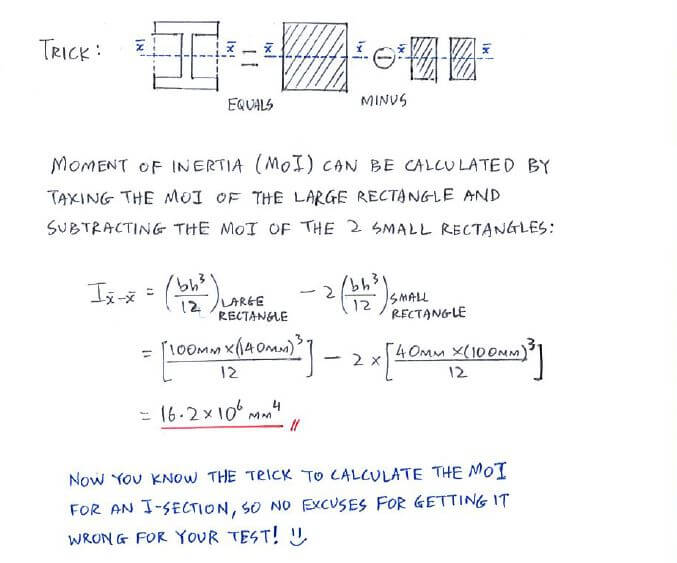 TRICK: x̄ x̄ = x̄ x̄ ⊖ x̄ x̄
EQUALS MINUS
MOMENT OF INERTIA (MOI) CAN BE CALCULATED BY
TAKING THE MOI OF THE LARGE RECTANGLE AND
SUBTRACTING THE MOI OF THE 2 SMALL RECTANGLES:
I x̄-x̄ = (bh³/12) LARGE RECTANGLE - 2 (bh³/12) SMALL RECTANGLE
= [100MM X(140MM)³/12] - 2 X [40MM X(100MM)³/12]
= 16.2 X 10⁶ MM⁴ //
NOW YOU KNOW THE TRICK TO CALCULATE THE MOI
FOR AN I-SECTION, SO NO EXCUSES FOR GETTING IT
WRONG FOR YOUR TEST!